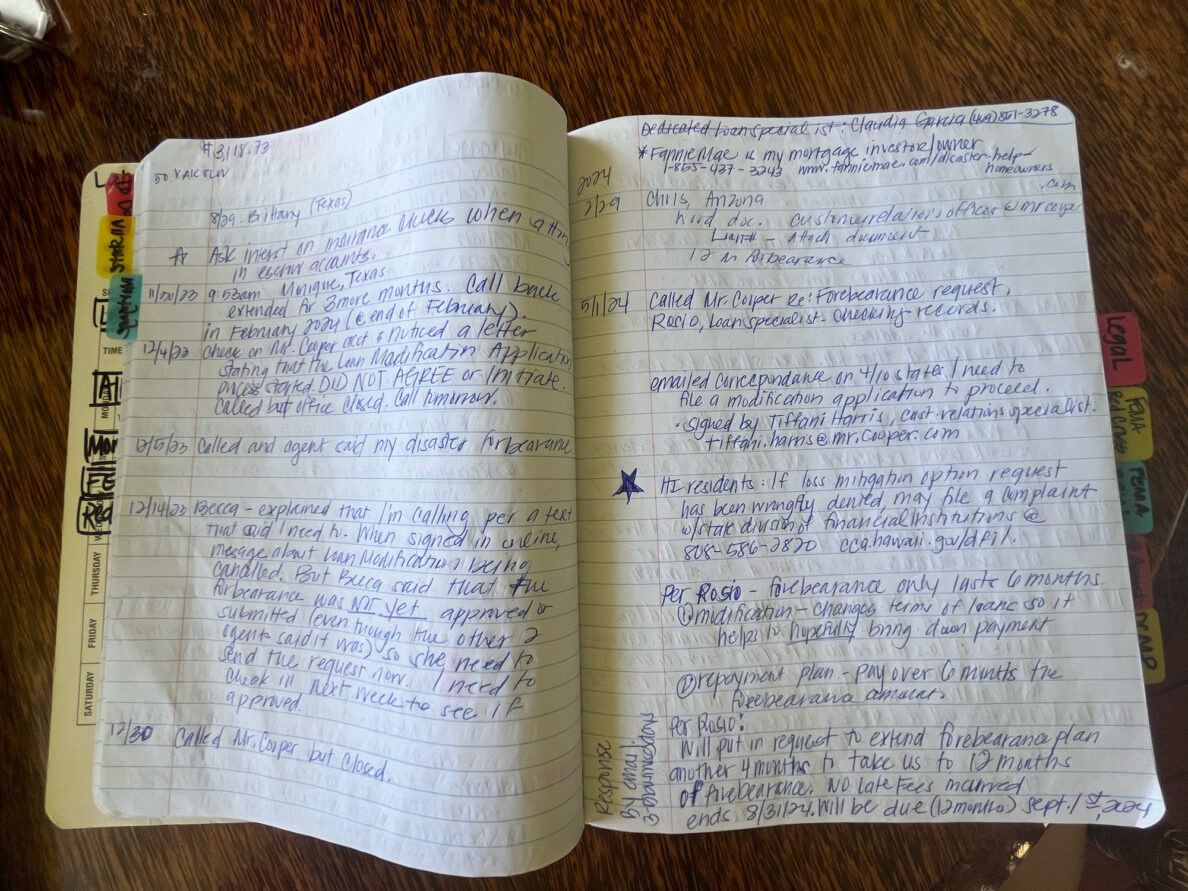 $3,118.73
8/29 Brittany (Texas)
☆ Ask interst on insurance checks when
in escrow accounts.
11/20/23 9:53am Monique, Texas
extended for 3 more months. Call back
in February 2024 (@ end of February).
12/4/23 Check on Mr. Cooper acct & noticed a letter
stating that the Loan Modification Application
process started. DID NOT AGREE or Initiate.
Called but office closed. Call tomorrow.
12/5/23 Called and agent said my disaster forbearance
12/14/23 Becca - explained that I'm calling per a text
that said I need to. When signed in online,
message about Loan Modification being
cancelled. But Becca said that the
forbearance was NOT yet approved or
submitted (even though the other 2
agent said it was) so she need to
send the request now. I need to
check in next week to see if
approved.
12/30 Called Mr. Cooper but closed.
SATURDAY
FRIDAY
THURSDAY
TIME
Dedicated Loan Specialist: Claudia Garcia
*Fannie Mae is my mortgage investor/owner
1-855-437-3243 www.fanniemae.com/disaster-help-
homeowners
.com
2024
2/29 Chris, Arizona
hard doc. customerrelationsoffices@mrcooper
Loan# - attach document
12 m
5/1/24 Called Mr. Cooper Re: Forebearance request,
Rosio, Loan specialist - checking records.
emailed correspondance on 4/10 states I need to
file a modification application to proceed.
• signed by Tiffani Harris, cust relations specialist.
tiffani.harris@mr.cooper.com
★ HI residents: If loss mitigation option request
has been wrongfly denied may file a complaint
w/state division of financial Institutions @
808-586-2820 cca.hawaii.gov/dfi/.
Per Rosio - forebearance only lasts 6 months
① modification - changes terms of loans so it
helps to hopefully bring down payment
② repayment plan - pay over 6 months the
forebearance amount.
Per Rosio:
Will put in request to extend forebearance plan
another 4 months to take us to 12 months
of forebearance. No Late Fees incurred
ends 8/31/24. Will be due (12 months) Sept. 1st, 2024
Response
By email
3-5 business days
LEGAL
FEMA
Red Cross
FEMA